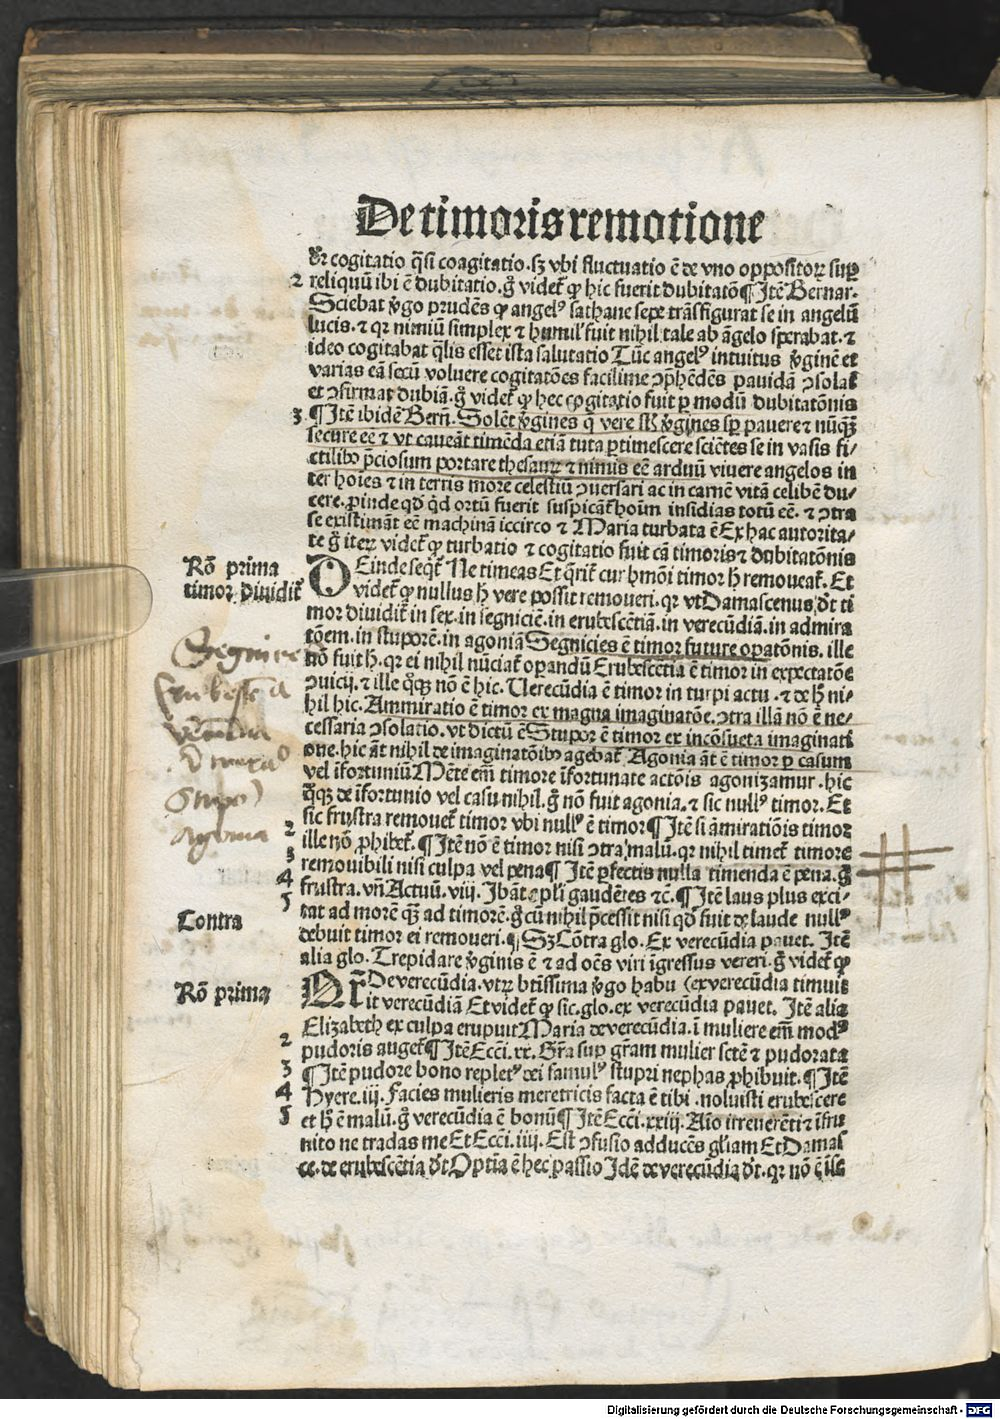 De timoris remotione
Et cogitatio q̄si coagitatio. sꝫ vbi fluctuatio ē de vno oppositoꝝ suꝑ
2 reliquū ibi ē dubitatio. g̊ videt̄ ꝙ hic fuerit dubitatō ¶ Itē Bernar.
Sciebat v̊go prudēs ꝙ angelꝰ sathane sepe trāsfigurat se in angelū
lucis. ⁊ qꝛ nimiū simplex ⁊ humil' fuit nihil tale ab āgelo sperabat. ⁊
ideo cogitabat q̄lis esset ista salutatio Tūc angelꝰ intuitus v̊ginē et
varias eā secū voluere cogitatōes facilime ꝯp̄hēdēs pauidā ꝯsolat̄
et ꝯfirmat dubiā. g̊ videt̄ ꝙ hec cogitatio fuit ꝑ modū dubitatōnis
3 ¶ Itē ibidē Bern̄. Solēt v̊gines q̄ vere st̄ v̊gines sꝑ pauere ⁊ nūq̄ꝫ
secure eē ⁊ vt caueāt timēda etiā tuta ꝑtimescere sciētes se in vasis fi/
ctilibꝰ p̄ciosum portare thesauꝝ ⁊ nimis eē arduū viuere angelos in
ter hoīes ⁊ in terris more celestiū ꝯuersari ac in carne vitā celibē du/
cere. ꝓinde qd̄ q̊d ortū fuerit suspicāt̄ hoīum insidias totū eē. ⁊ ꝯtra
se existimāt eē machinā iccirco ⁊ Maria turbata ē Ex hac autorita/
te g̊ iteꝝ videt̄ ꝙ turbatio ⁊ cogitatio fuit cā timoris ⁊ dubitatōnis
Rō prima
timor diuidit̄
DEinde seq̄t̄ Ne timeas Et q̄rit̄ cur hmōi timor h̄ remoueat̄. Et
videt̄ ꝙ nullus h̄ vere possit remoueri. qꝛ vt Damascenus dt̄ ti
mor diuidit̄ in sex. in segniciē. in erubescētiā. in verecūdiā. in admira
tōem. in stuporē. in agoniā Segnicies ē timor future oꝑatōnis. ille
nō fuit h̄. qꝛ ei nihil nūciat̄ operandū Erubescētia ē timor in expectatōe
ꝯuicij. ⁊ ille q̊qꝫ nō ē hic. Verecūdia ē timor in turpi actu. ⁊ de h̄ ni/
hil hic. Ammiratio ē timor ex magna imaginatōe. ꝯtra illā nō ē ne/
cessaria ꝯsolatio. vt dictū ē Stupor ē timor ex incōsueta imaginati
one. hic āt nihil de imaginatōibꝰ agebat̄ Agonia āt ē timor ꝑ casum
vel īfortuniū Mēte em̄ timore īfortunate actōis agonizamur. hic
q̊qꝫ de īfortunio vel casu nihil. g̊ nō fuit agonia. ⁊ sic nullꝰ timor. Et
sic frustra remouet̄ timor vbi nullꝰ ē timor ¶ Itē si āmiratiōis timor
Segnicies
Erubescētia
verecūdia
Stupor
Agonia
2
ille nō ꝓhibet̄. ¶ Itē nō ē timor nisi ꝯtra malū. qꝛ nihil timet̄ timore
3
remouibili nisi culpa vel pena ¶ Itē ꝑfectis nulla timenda ē pena. g̊
4
frustra. vn̄ Actuū. viij. Ibāt apl̄i gaudētes ⁊c̄. ¶ Itē laus plus exci/
5
tat ad morē q̄ꝫ ad timorē. g̊ cū nihil p̄cessit nisi qd̄ fuit de laude nullꝰ
Contra
debuit timor ei remoueri. ¶ Sꝫ Cōtra glo. Ex verecūdia pauet. Itē
alia glo. Trepidare v̊ginis ē ⁊ ad oēs viri īgressus vereri. g̊ videt̄ ꝙ
Rō prima
ex verecūdia timuit
De verecūdia. vtꝝ bt̄issima v̊go habu
it verecūdiā Et videt̄ ꝙ sic. glo. ex verecūdia pauet. Itē alia
Elizabeth ex culpa erupuit Maria de verecūdia. ī muliere em̄ modꝰ
2 pudoris auget̄ ¶ Itē Ecci. xx. Gr̄a suꝑ gr̄am mulier sctē ⁊ pudorata
3 ¶ Itē pudore bono repletꝰ dei famulꝰ stupri nephas ꝓhibuit. ¶ Itē
4 Hyere. iij. Facies mulieris meretricis facta ē tibi. noluisti erubescere
5 et h̄ ē malū. g̊ verecūdia ē bonū ¶ Itē Ecci. xxiij. Aīo irreuerēti ⁊ īfru
nito ne tradas me Et Ecci. iiij. Est ꝯfusio adducēs gl̄iam Et Damas
ce. de erubescētia dt̄ Optīa ē hec passio Idē de verecūdia dt̄. qꝛ nō ē
Digitalisierung gefördert durch die Deutsche Forschungsgemeinschaft - DFG